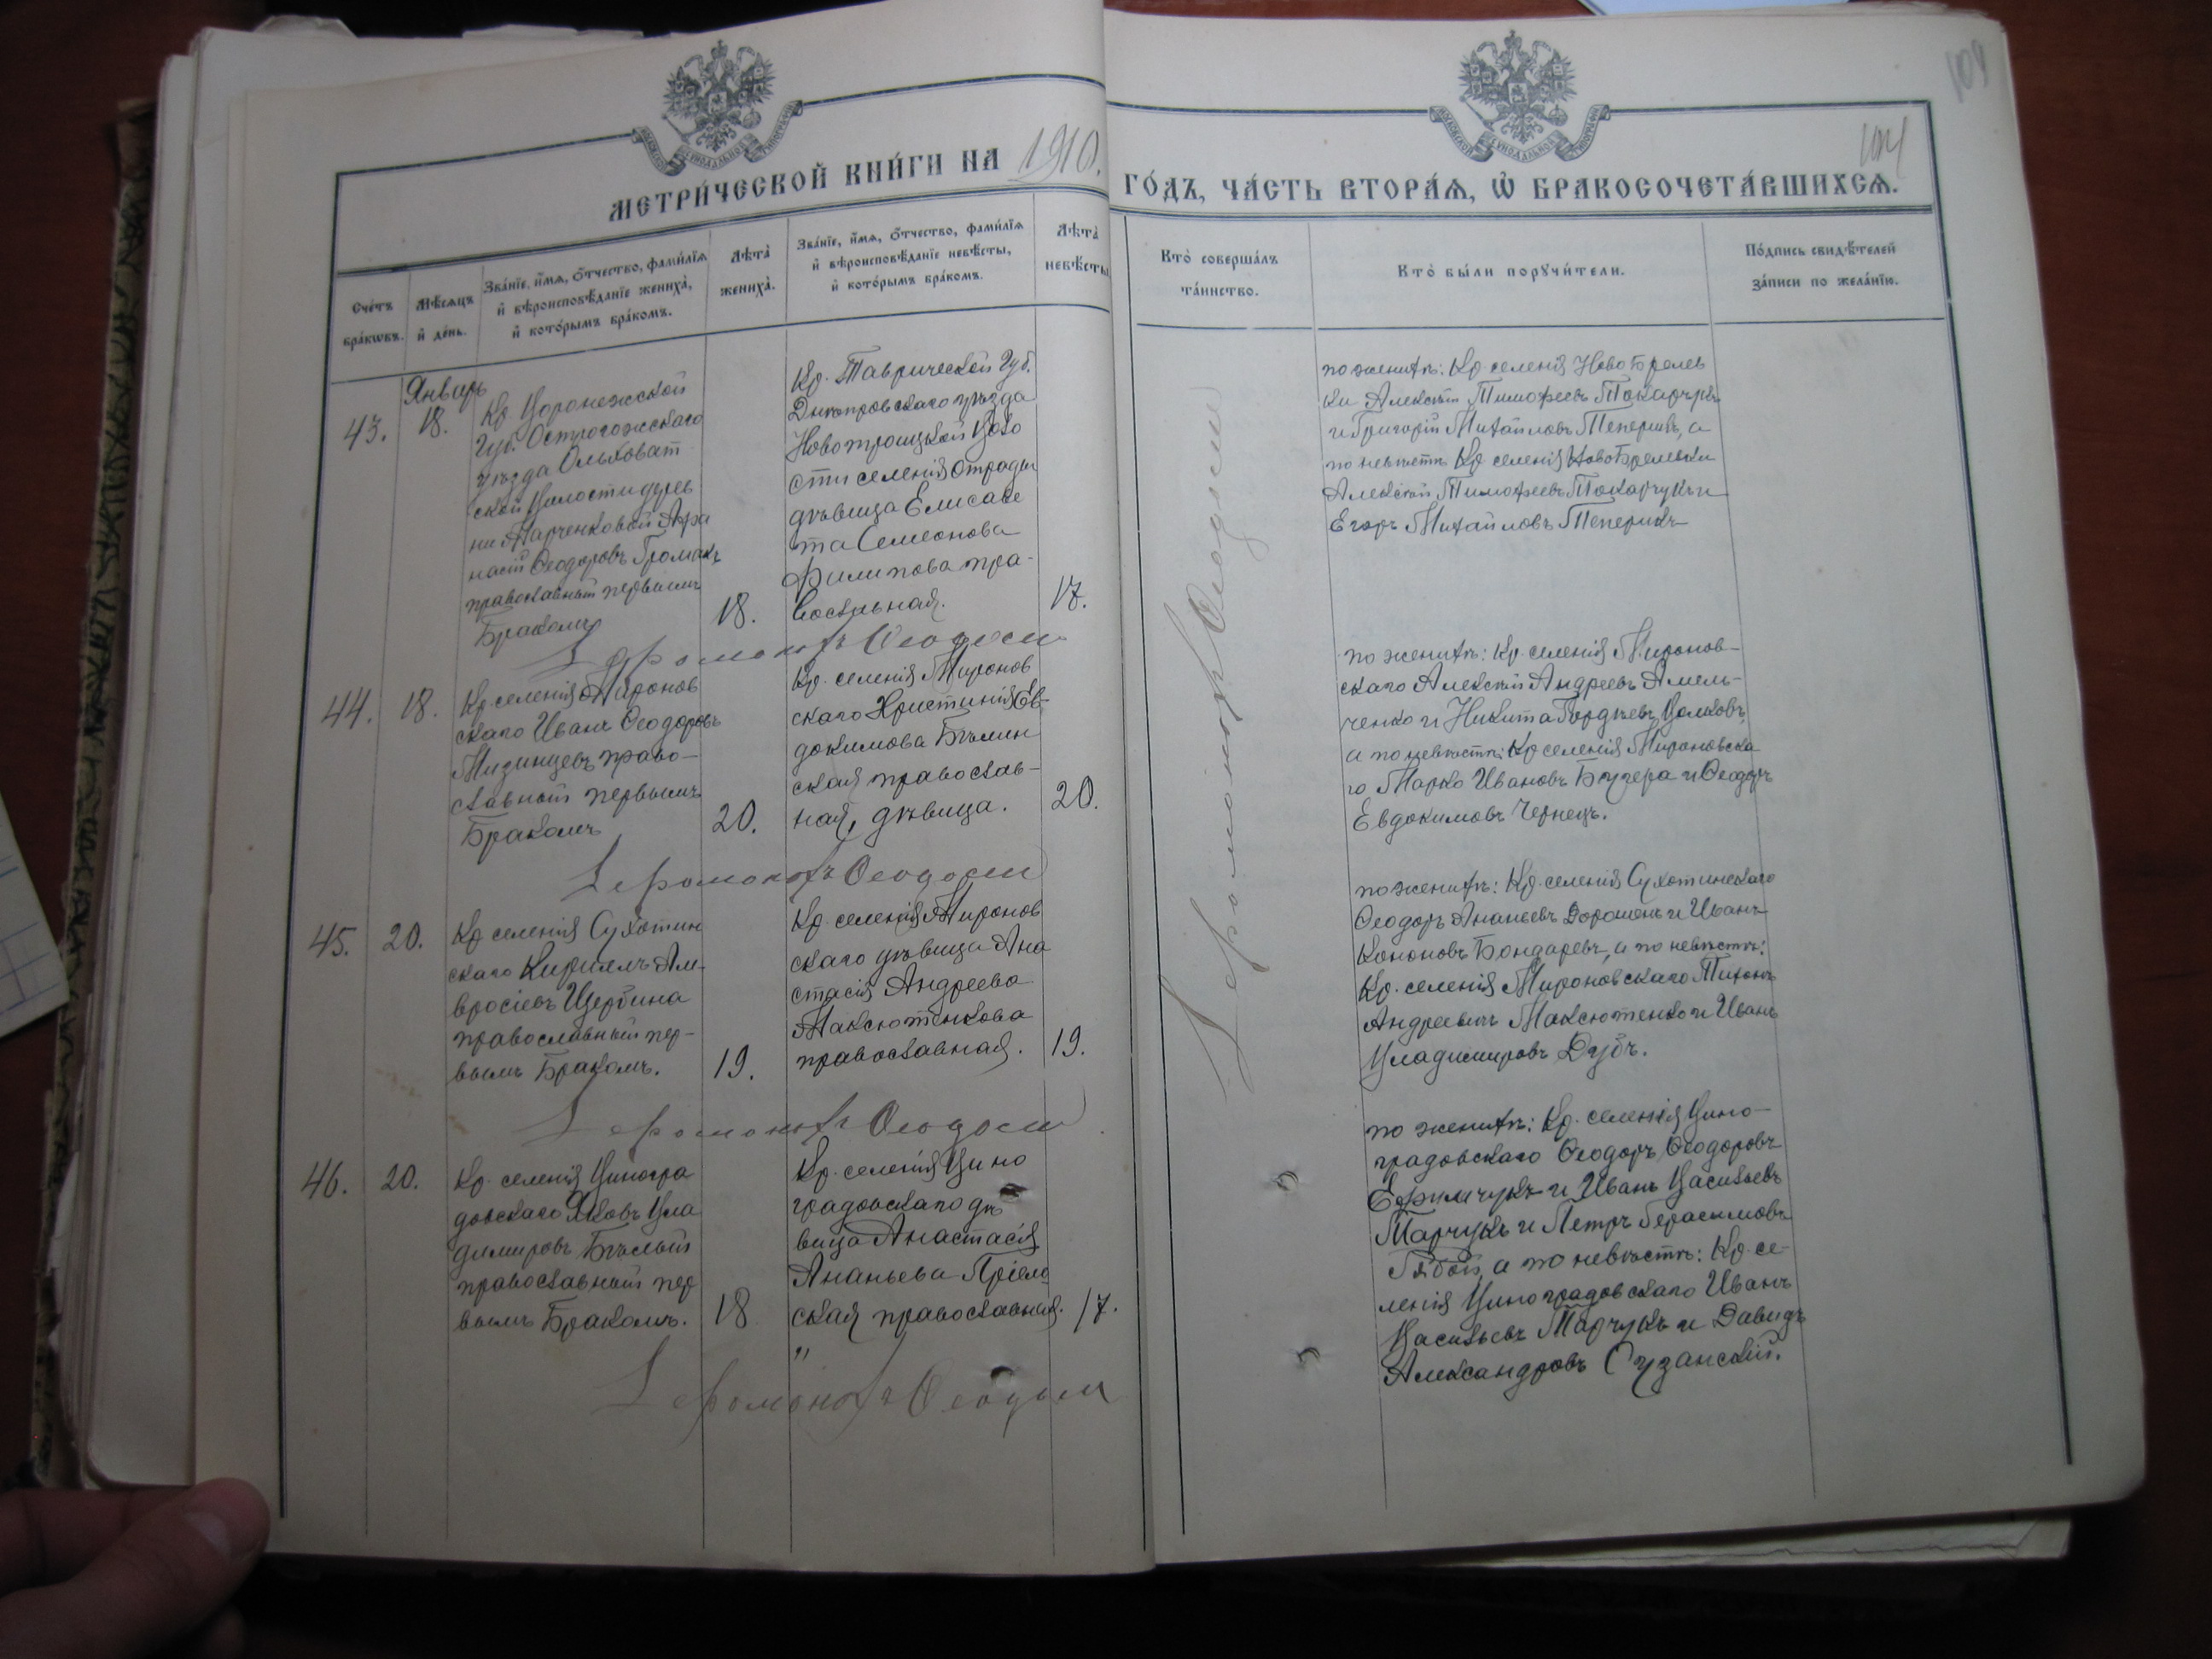 109
104
МЕТРИ́ЧЕСКОЙ КНИ́ГИ НА 1910.
ГО́ДЪ, ЧА́СТЬ ВТОРА́Ѧ, Ѡ҆ БРАКОСОЧЕТА́ВШИХСѦ.
Сче́тъ бра́кѡвъ.
Мѣ́сѧцъ и҆ де́нь.
Зва́нїе, и҆́мѧ, ѻ҆́тчество, фами́лїѧ
и҆ вѣроисповѣ́данїе жениха̀,
и҆ кото́рымъ бра́комъ.
Лѣта̀
жениха̀.
Зва́нїе, и҆́мѧ, ѻ҆́тчество, фами́лїѧ
и҆ вѣроисповѣ́данїе невѣ́сты,
и҆ кото́рымъ бра́комъ.
Лѣта̀
невѣ́сты
Кто̀ соверша́лъ
та́инство.
Кто̀ бы́ли порꙋчи́тели.
По́дпись свидѣ́телей
за́писи по жела́нїю.
Январь
43.
18.
Кр. Воронежской
Губ. Острогожскаго
уѣзда Ольховат
ской Волости дерев
ни Марченковой Афа
насій Ѳеодоровъ Громакъ
православный первымъ
Бракомъ
18.
Кр. Таврической Губ.
Днѣпровскаго уѣзда
Новотроицкой Воло
сти селенія Отрады
дѣвица Елисаве
та Семеонова
Филипова пра-
вославная.
17.
по женихѣ: Кр. селенія НовоБрелев
ки Алексѣй Тимофеевъ Токарчукъ
и Григорій Михайловъ Теперикъ, а
по невѣстѣ Кр. селенія НовоБрелевки
Алексѣй Тимофеевъ Токарчукъ и
Егоръ Михайловъ Теперикъ
Іеромонахъ Ѳеодосій
44.
18.
Кр. селенія Миронов
скаго Иванъ Ѳеодоровъ
Мизинцевъ право-
славный первымъ
Бракомъ
20.
Кр. селенія Миронов
скаго Христинія Ев-
докимова Бѣлин
ская православ-
ная, дѣвица.
20.
по женихѣ: Кр. селенія Миронов-
скаго Алексѣй Андреевъ Амель-
ченко и Никита Гордѣевъ Волковъ,
а по невѣстѣ: Кр. селенія Мироновска
го Марко Ивановъ Бучера и Ѳеодоръ
Евдокимовъ Чернецъ.
Іеромонахъ Ѳеодосій
45.
20.
Кр. селенія Сухотин
скаго Кириллъ Ам-
вросіевъ Щербина
православный пер-
вымъ Бракомъ.
19.
Кр. селенія Миронов
скаго дѣвица Ана
стасія Андреева
Максютенкова
православная.
19.
по женихѣ: Кр. селенія Сухотинскаго
Ѳеодоръ Ананьевъ Дорошенъ и Иванъ
Кононовъ Бондаревъ, а по невѣстѣ:
Кр. селенія Мироновскаго Тихонъ
Андреевичъ Максютенко и Иванъ
Владимировъ Дубъ.
Іеромонахъ Ѳеодосій
46.
20.
Кр. селенія Виногра
довскаго Яковъ Вла
димировъ Бѣлый
православный пер
вымъ Бракомъ.
18
Кр. селенія Вино
градовскаго дѣ
вица Анастасія
Ананьева Пріем
ская православная.
"
17.
по женихѣ: Кр. селенія Вино-
градовскаго Ѳеодоръ Ѳеодоровъ
Ефимчукъ и Иванъ Васильевъ
Марчукъ и Петръ Герасимовъ
Рябой, а по невѣстѣ: Кр. се-
ленія Виноградовскаго Иванъ
Васильевъ Марчукъ и Давидъ
Александровъ Сузанскій.
Іеромонахъ Ѳеодосій
Іеромонахъ Ѳеодосій